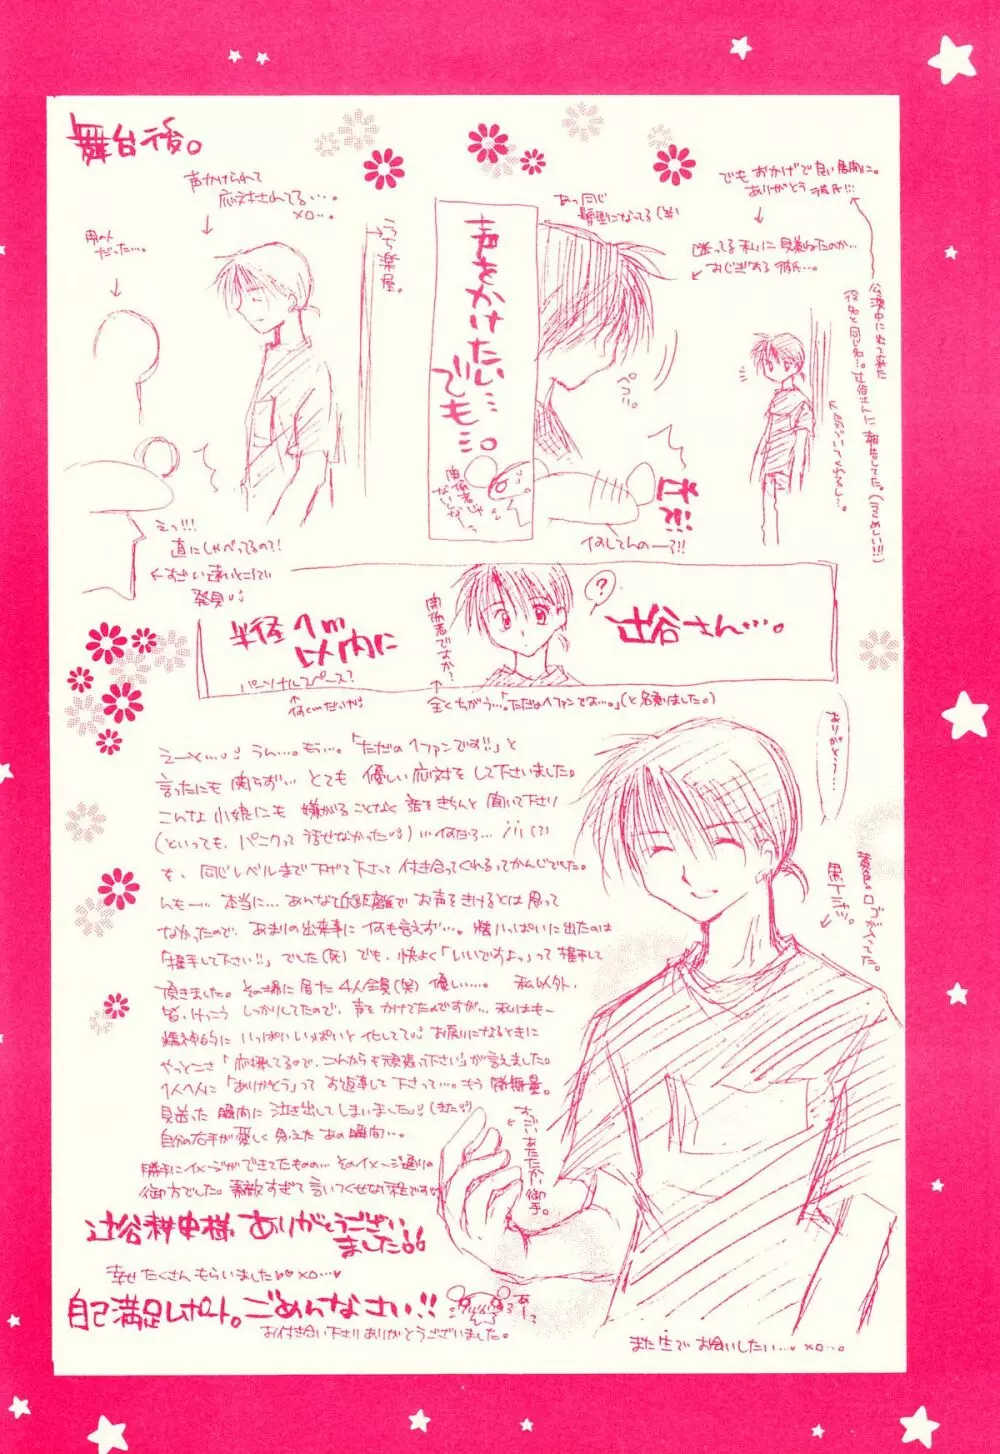 舞台後。
声かけられて
応対されてる…。
男の人
だった…。
うち楽屋。
声をかけたい…
でも…。
あっ同じ
髪型になってる(笑)
でも おかげで良い展開に。
ありがとう 彼氏!!!
おじぎする 彼氏…。
ペコッ。
なにしてんのーっ!!
えっ!!!
直にしゃべってるの?!
すごい遠いところで
発見
半径1m
以内に
パーソナルスペース?
関係者ですか?
?
辻谷さん…。
全くちがう…。「ただの1ファンです…。」(と名乗りました。)
えーと…。うん…。もう…。「ただの1ファンです!!」と
言ったにも関らず… とても 優しい応対を して下さいました。
こんな 小娘にも 嫌がることなく 話をきちんと 聞いて下さり
(といっても、パニクって 話せなかった) … 何だろ… (?)
も、同じレベルまで下げて下さって 付き合ってくれるってかんじでした。
んもー… 本当に… あんな近距離で お声をきけるとは思って
なかったので、あまりの出来事に 何も言えず…。精いっぱいに出たのは
「握手して下さい!!」でした(死) でも、快よく「いいですよ。」って 握手して
頂きました。その場に居た 4人全員(笑) 優しい…。 私以外、
皆、けっこう しっかりしてたので、声を かけてたのですが… 私はもー
精神的に いっぱいいっぱいと 化してて お戻りになるときに
やっとこさ「応援してるので、これからも頑張って下さい」が言えました。
1人1人に「ありがとう」って お返事して 下さって…。もう 感無量。
見送った 瞬間に 泣き出してしまいました
自分の右手が 愛しく 思えた あの瞬間…。
勝手にイメージができてたものの… そのイメージ通りの
御方でした。素敵すぎて 言いつくせない
辻谷耕史様 ありがとうござい
ました
幸せ たくさん もらいました
自己満足レポート。ごめんなさい!!
お付き合い下さり ありがとうございました。
ありがとう…
黒Tシャツ。
すごい あたたかい 御手。
また生で お会いしたい…